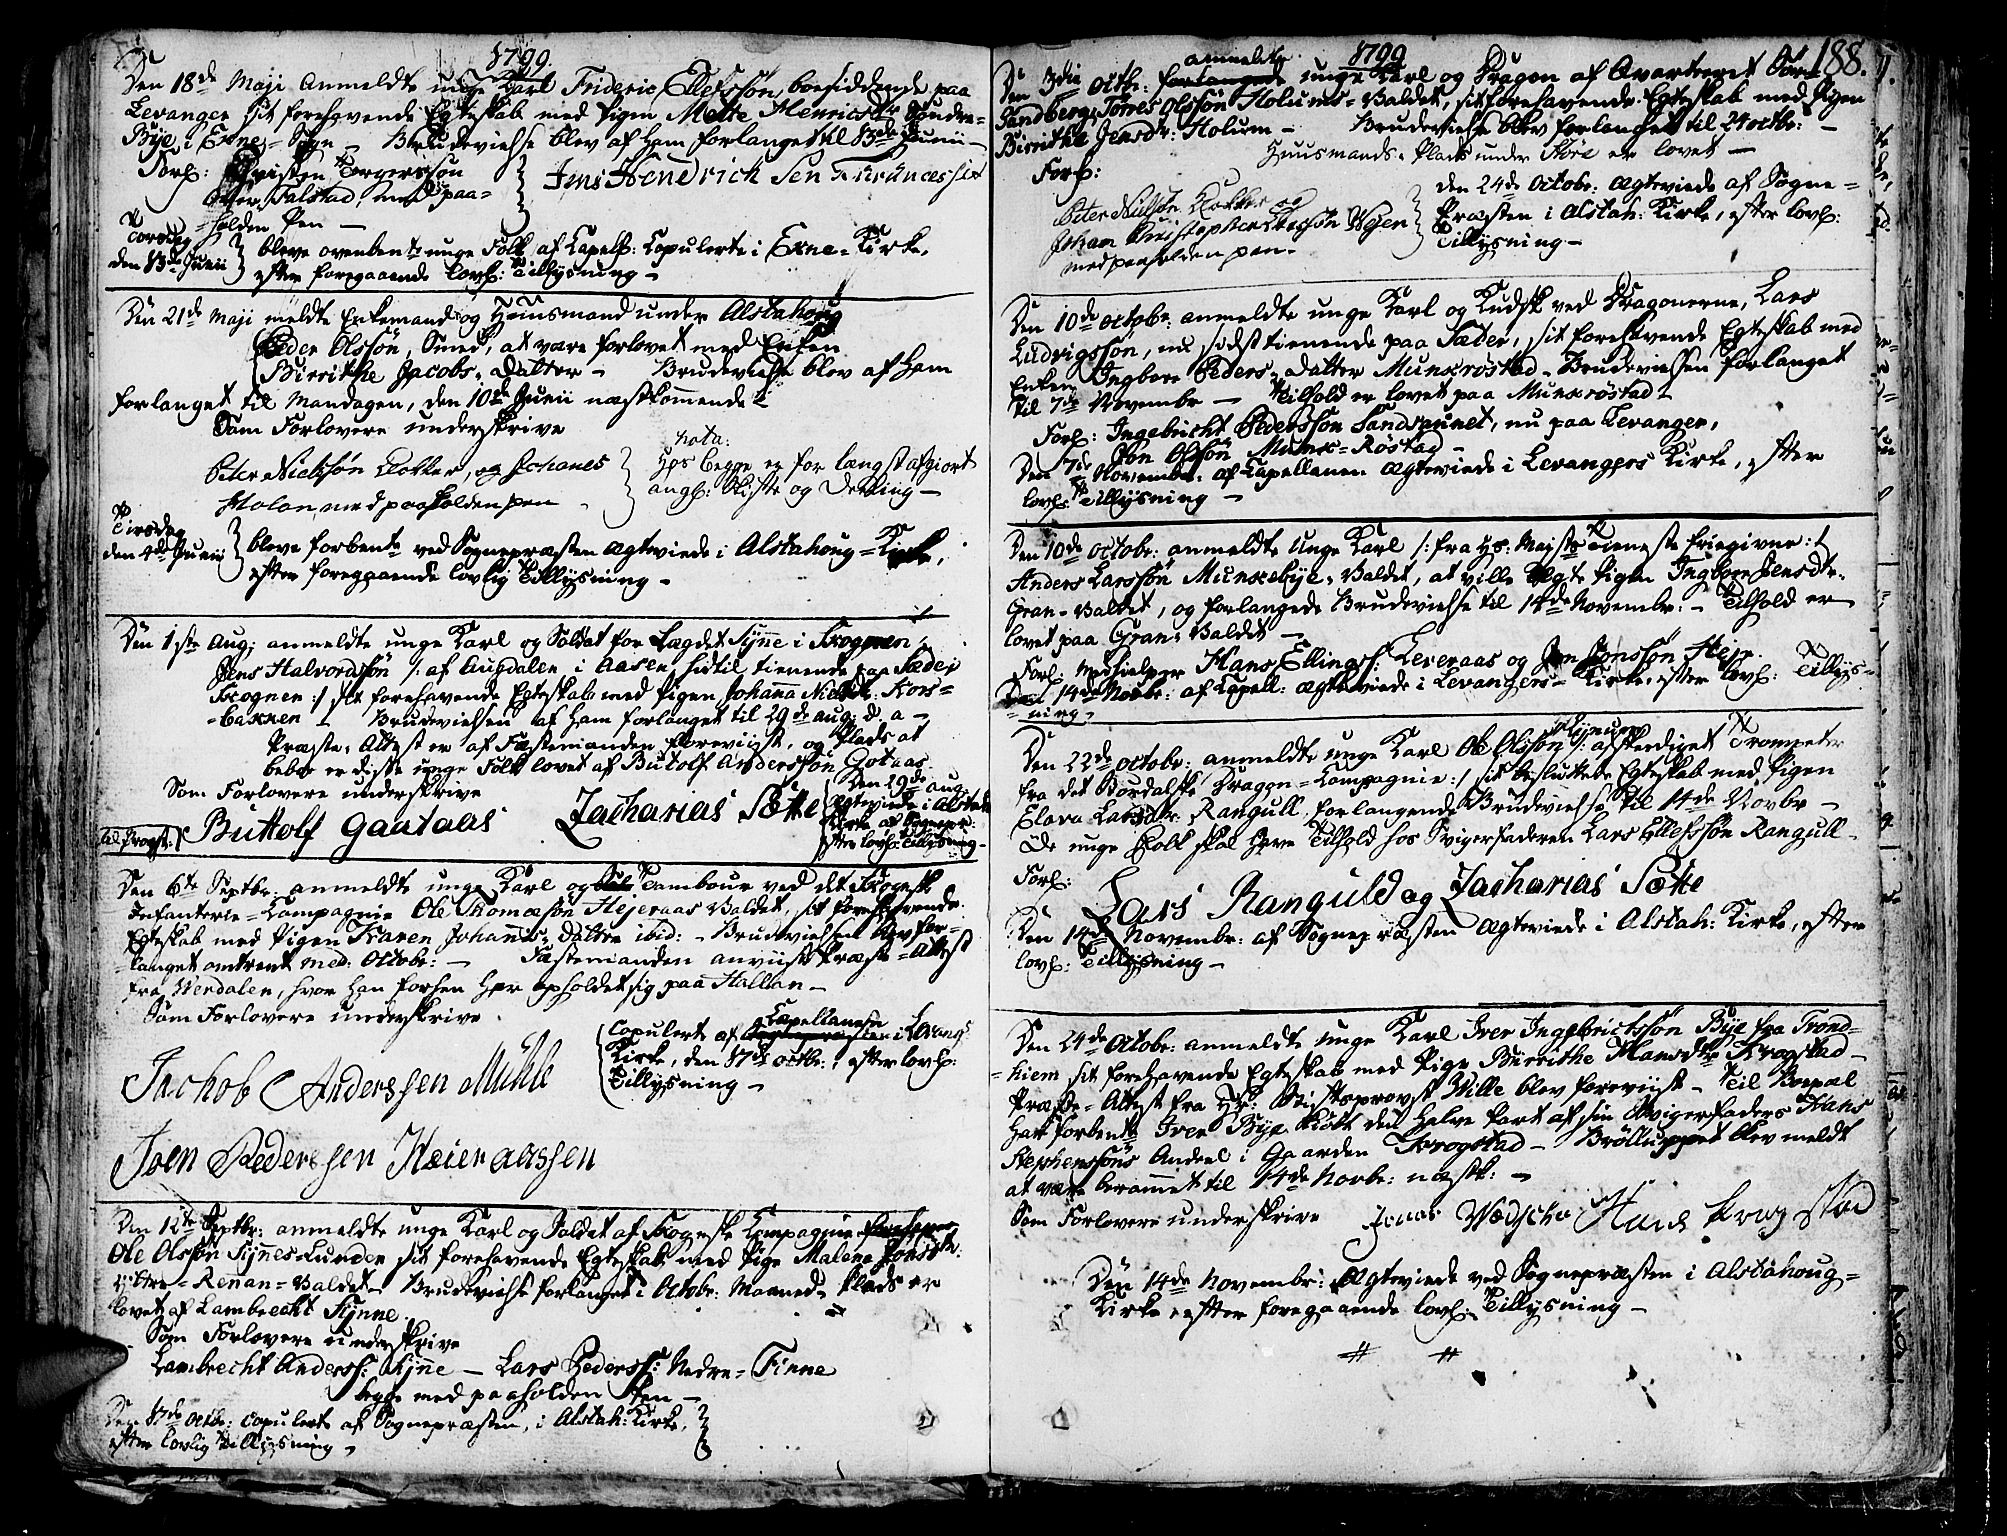 1799.
Den 18de Maji anmeldte unge Karl Frideric Ellefssøn, boesiddende paa
Levanger sit forehavende Egteskab med Pigen Mette Henricsdtr Søndre-
Bye i Exne-Sogn - Brudevielse blev af ham forlanget til 13de Junii -
Forl: Christen Torgerssøn
Øster Falstad, med paa-
holden Pen -
Jens Hendrich Sen
Torsdag
den 13de Junii
bleve ovenbente unge Folk af Capell: Copulerte i Exne-Kirke,
efter foregaaende lovl: Tillysning -
Den 21de Maji meldte Enkemand og Huusmand under Alstahoug
Peder Olssøn, Smed, at være forlovet med Enken
Birrithe Jacobs-Datter - Brudevielse blev af ham
forlanget til Mandagen, den 10de Junii næstkommende -
Som Forlovere underskrive
Peter Nielssøn Kokker, og Johanes
Molan med paaholden pen
nota:
hos begge er for længst afgiort
angl: Skifte og Deeling -
Tirsdag
den 4de Junii
bleve forbente ved Sognepræsten Ægteviede i Alstahoug-Kirke,
efter foregaaende lovlig Tillysning -
Den 1ste Aug: anmeldte unge Karl og Soldat for Lægdet Tynne i Skognen
Jens Halvordssøn /: af Augdalen i Aasen, hidtil tienende paa Sæder i
Skognen :/ sit forehavende Egteskab med Pigen Johanna Nielsdtr: Kors-
bakken - Brudevielsen af ham forlanget til 29de aug: d. a -
Præste-Attest er af Fæstemanden foreviist, og Plads at
beboe er disse unge Folk lovet af Butolf Anderssøn Gotaas.
Som Forlovere underskrive
Buttolf Gaataas Zacharias Sætte
Den 29de aug:
Ægteviede i Alstah:
Kirke af Sognepr:
efter lovl: Tillysning -
Den 6te Septbr: anmeldte unge Karl og Tambour ved det Skogneske
Infanterie-Compagnie Ole Thomæsøn Hejeraas Valdet, sit forehavende
Egteskab med Pigen Karen Johannes-Datter ibid: - Brudevielsen blev for-
langet omtrent med: Octobr: - Fæstemanden anviiste Præste-Attest
fra Værdalen, hvor han forhen har opholdet sig paa Hallan -
Som Forlovere underskrive
Copulert af Capellanen i Levang:
Kirke, den 17de octbr: efter lovl:
Tillysning -
Jachob Anderssen Mühle
Joen Pedersen Heieraassen
Den 12te Septbr: anmeldte unge Karl og Soldat af Skogneske Compagnie
Ole Olssøn Tynnes-Lunden sit forehavende Egteskab med Pige Malene Jonsdtr:
Yttre-Renan-Valdet - Brudevielse forlanget i Octobr: Maaned - Plads er
lovet af Lambrecht Tynne
Som Forlovere underskrive
Lambrecht Anderss: Tynne - Lars Pederss: Nedre-Finne
begge med paaholden Pen -
Den 17de Octbr: copulerte af Sognepræsten, i Alstah: Kirke,
efter lovlig Tillysning -
1799
188.
Den 3die Octb: anmeldte unge Karl og Dragon af Qvarteret Sør-
Sandberg, Torres Olssøn Holums-Valdet, sit forehavende Egteskab med Pigen
Birrithe Jensdr: Holum - Brudevielse blev forlanget til 24 octbr: -
Huusmands-Plads under Støre er lovet -
Forl:
Peter Nielsøn Kokker og
Johan Christopher Wejen
med paaholden pen -
den 24de Octobr: Ægteviede af Sogne-
Præsten i Alstah: Kirke, efter lovl:
Tillysning -
Den 10de octobr: anmeldte unge Karl og Kudsk ved Dragonerne, Lars
Ludvigssøn, nu sidst tienende paa Sæder, sit forehavende Egteskab med
Enken Ingbore Peders-Datter Munkrøstad - Brudevielsen forlanget
til 7de Novembr - Tilhold er lovet paa Munkrøstad -
Forl: Ingebricht Pederssøn Sandspunet, nu paa Levanger,
Jon Olssøn Munk-Røstad -
Den 7de Novembr: af Capellanen ægteviede i Levangers Kirke, efter
lovl: Tillysning -
Den 10de octobr: anmeldte Unge Karl /: fra Hs: Majsts Tieneste friegivne :/
Anders Larssøn Munkebye-Valdet, at ville Ægte Pigen Ingbore Jensdtr-
Gran-Valdet, og forlangede Brudevielse til 14de Novembr: - Tilhold er
lovet paa Gran-Valdet -
Forl: Medhielper Hans Ellingss: Leveraas og Jon Jonssøn Heje.
Den 14de Novbr: af Capell: ægteviede i Levangers-Kirke, efter lovl: Tillys-
ning -
Den 22de octobr: anmeldte unge Karl Ole Olssøn Rynum /: afskediget Trompeter
fra det Børdalske Dragon-Compagnie :/ sit besluttede Egteskab med Pigen
Elova Larsdtr: Rangull forlangende Brudevielse til 14de Novbr -
De unge Folk skal have Tilhold hos Svigerfaderen Lars Ellefssøn Rangull -
Forl:
Lars Ranguld og Zacharias Sætte
Den 14de Novembr: af Sognepræsten Ægteviede i Alstah: Kirke, efter
lovl: Tillysning -
Den 24de Octobr: anmeldte unge Karl Iver Ingebrichtssøn Bye fra Trond-
hiem sit forehavende Egteskab med Pige Birrithe Hansdtr Krogstad -
Præste-Attest fra Hr: Stiftsprovst Wille blev foreviist - Til Boepæl
har forbente Iver Bye kiøbt den halve Part af sin Svigerfaders Hans
Stephenssøns Andeel i Gaarden Krogstad - Brølluppet blev meldt
at være berammet til 14de Novbr: næstk: -
Som Forlovere underskrive Jonas Wædscho Hans Krogstad
Den 14de Novembr: Ægteviede ved Sognepræsten i Alstahoug-
Kirke efter foregaaende lovl: Tillysning -